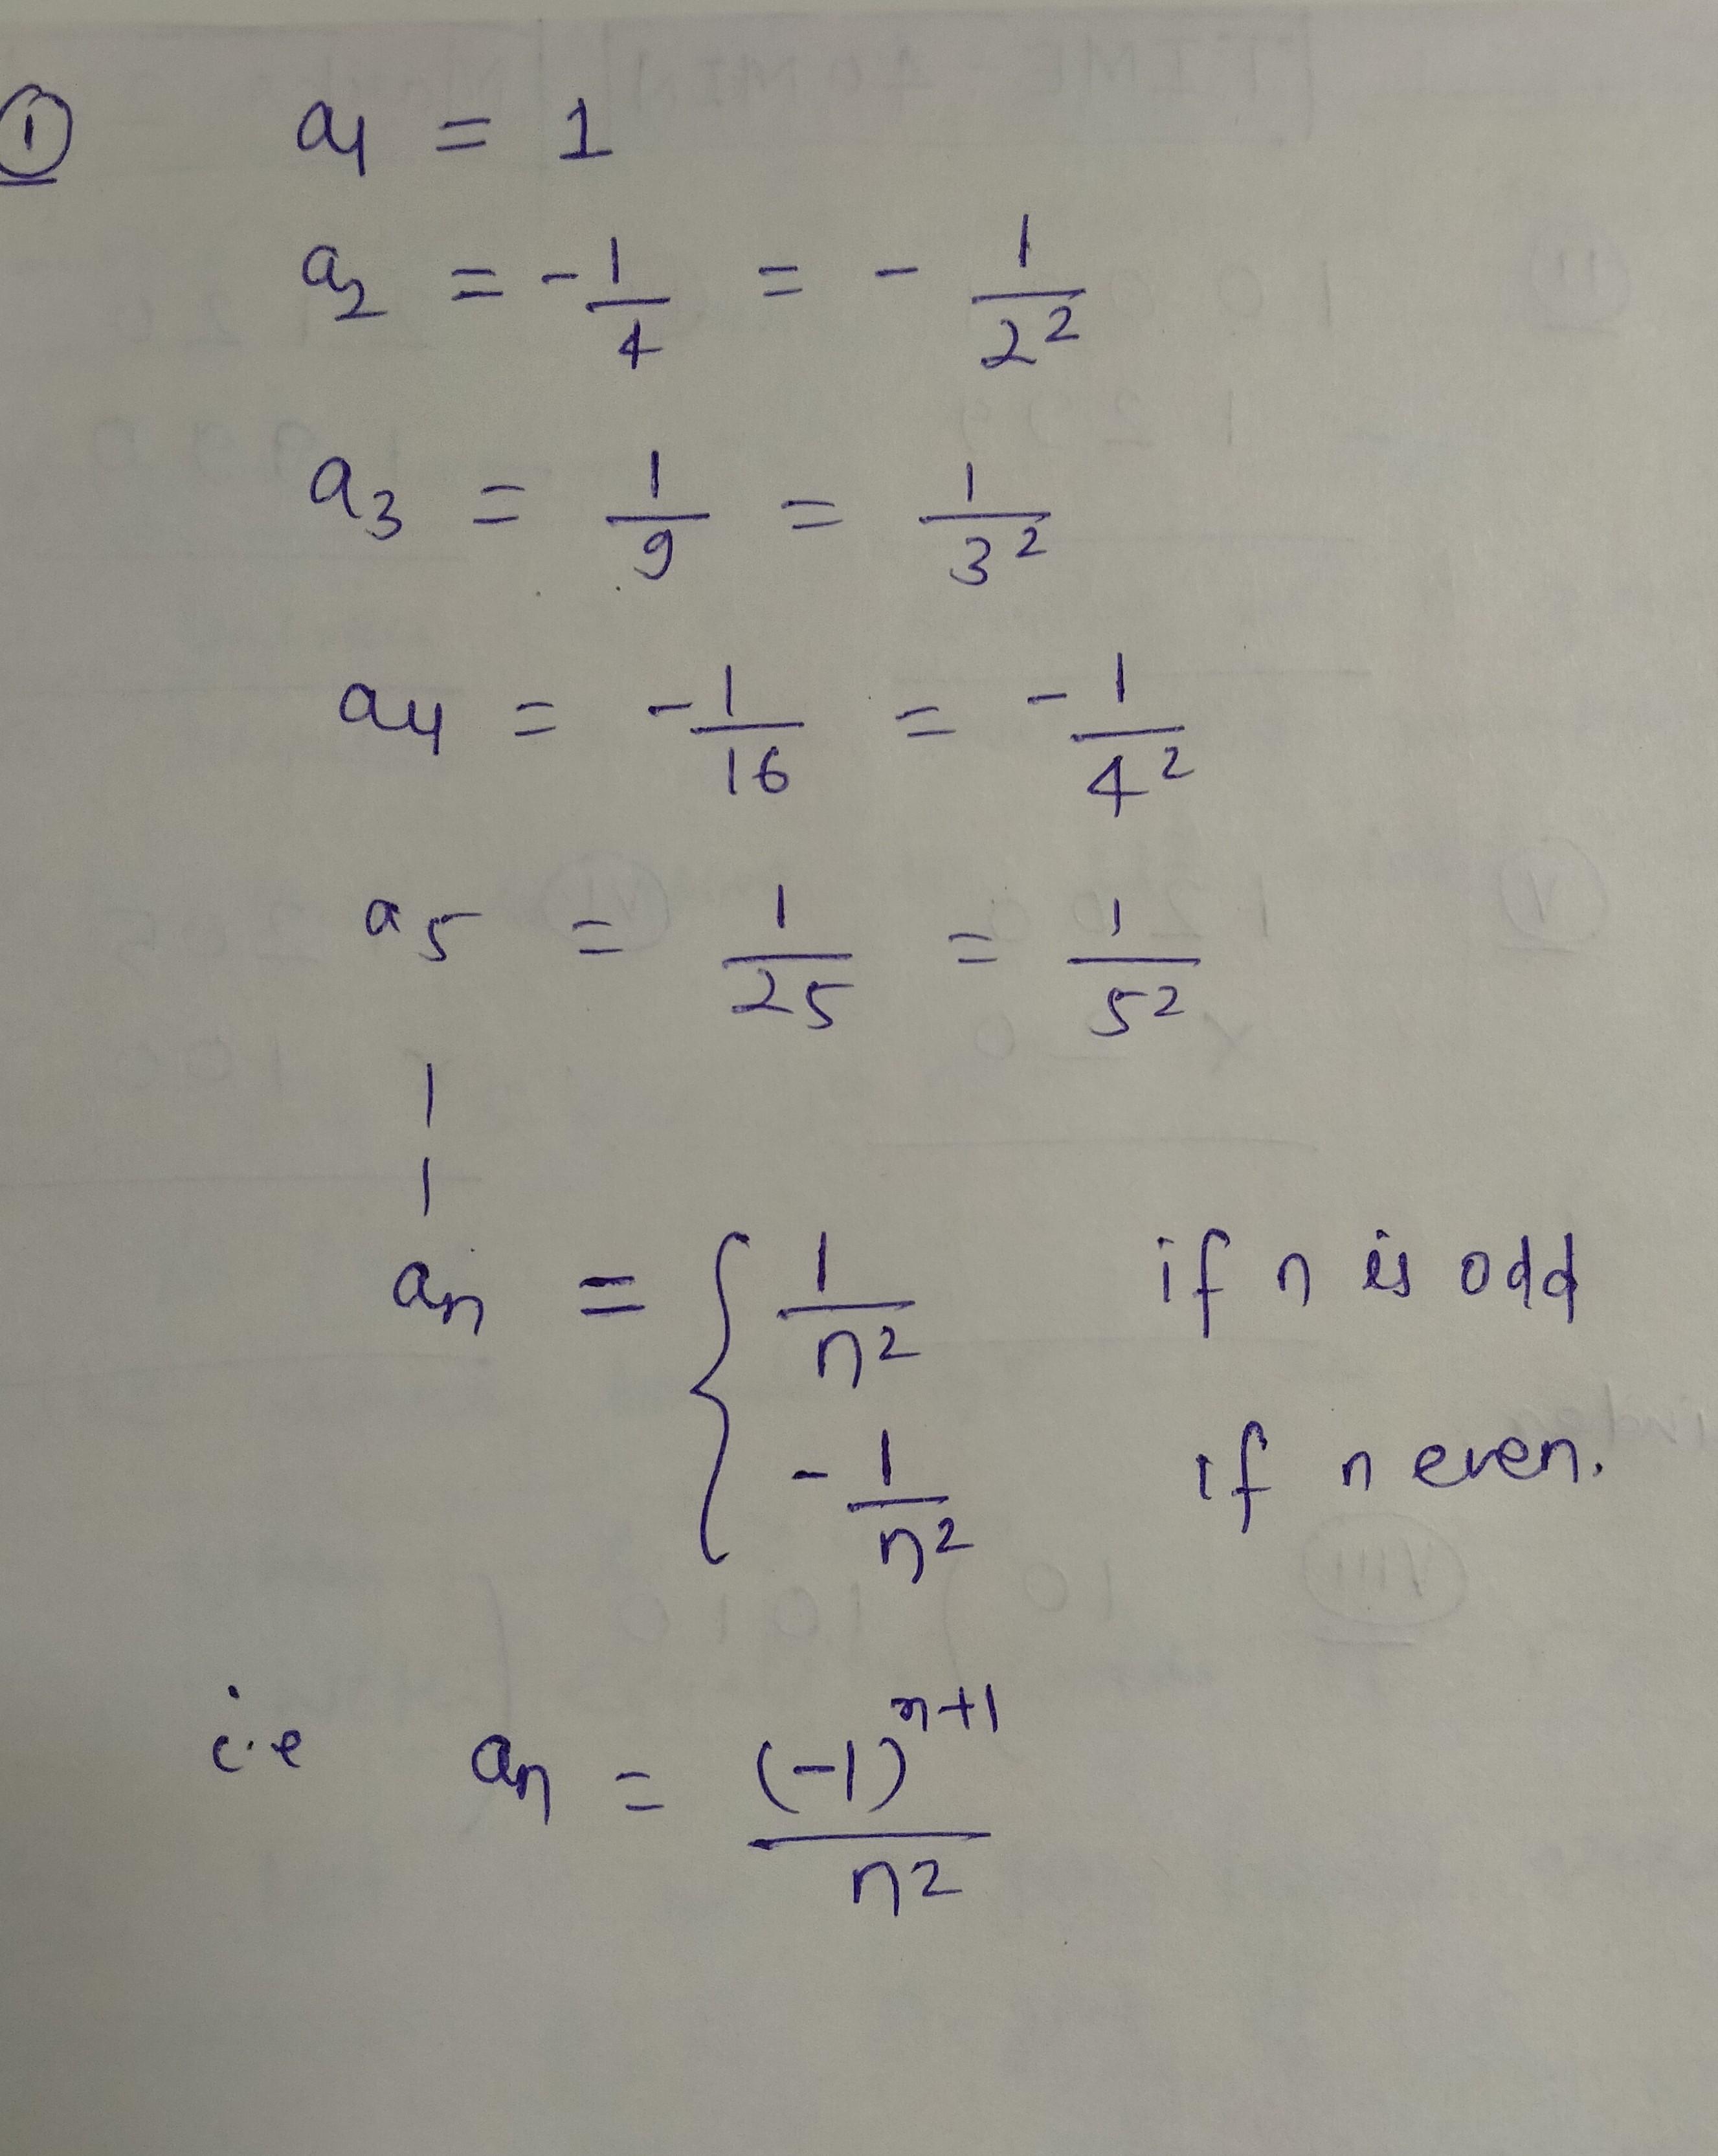 ① a₁ = 1
a₂ = -1/4 = - 1/2²
a₃ = 1/9 = 1/3²
a₄ = -1/16 = -1/4²
a₅ = 1/25 = 1/5²
|
|
aₙ = { 1/n² if n is odd
-1/n² if n even.
i.e aₙ = (-1)ⁿ⁺¹/n²